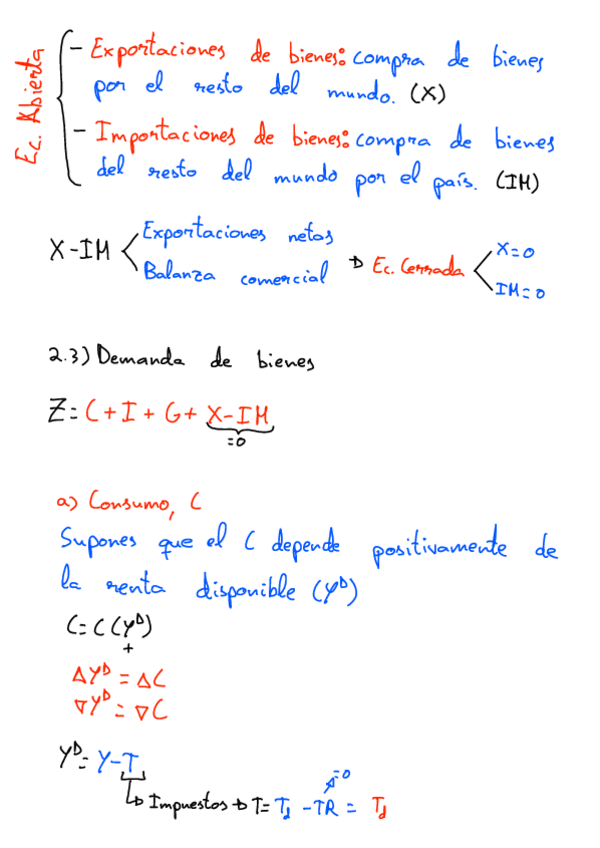 Ec. Abierta
- Exportaciones de bienes: compra de bienes
por el resto del mundo. (X)
- Importaciones de bienes: compra de bienes
del resto del mundo por el país. (IM)
X-IM < Exportaciones netas
Balanza comercial → Ec. Cerrada < X=0
IM=0
2.3) Demanda de bienes
Z= C+I+G+X-IM
=0
a) Consumo, C
Supones que el C depende positivamente de
la renta disponible (Yᴰ)
C=C(Yᴰ)
+
ΔYᴰ = ΔC
∇Yᴰ = ∇C
Yᴰ= Y-T
=0
↳ Impuestos → T= Td -TR = Td